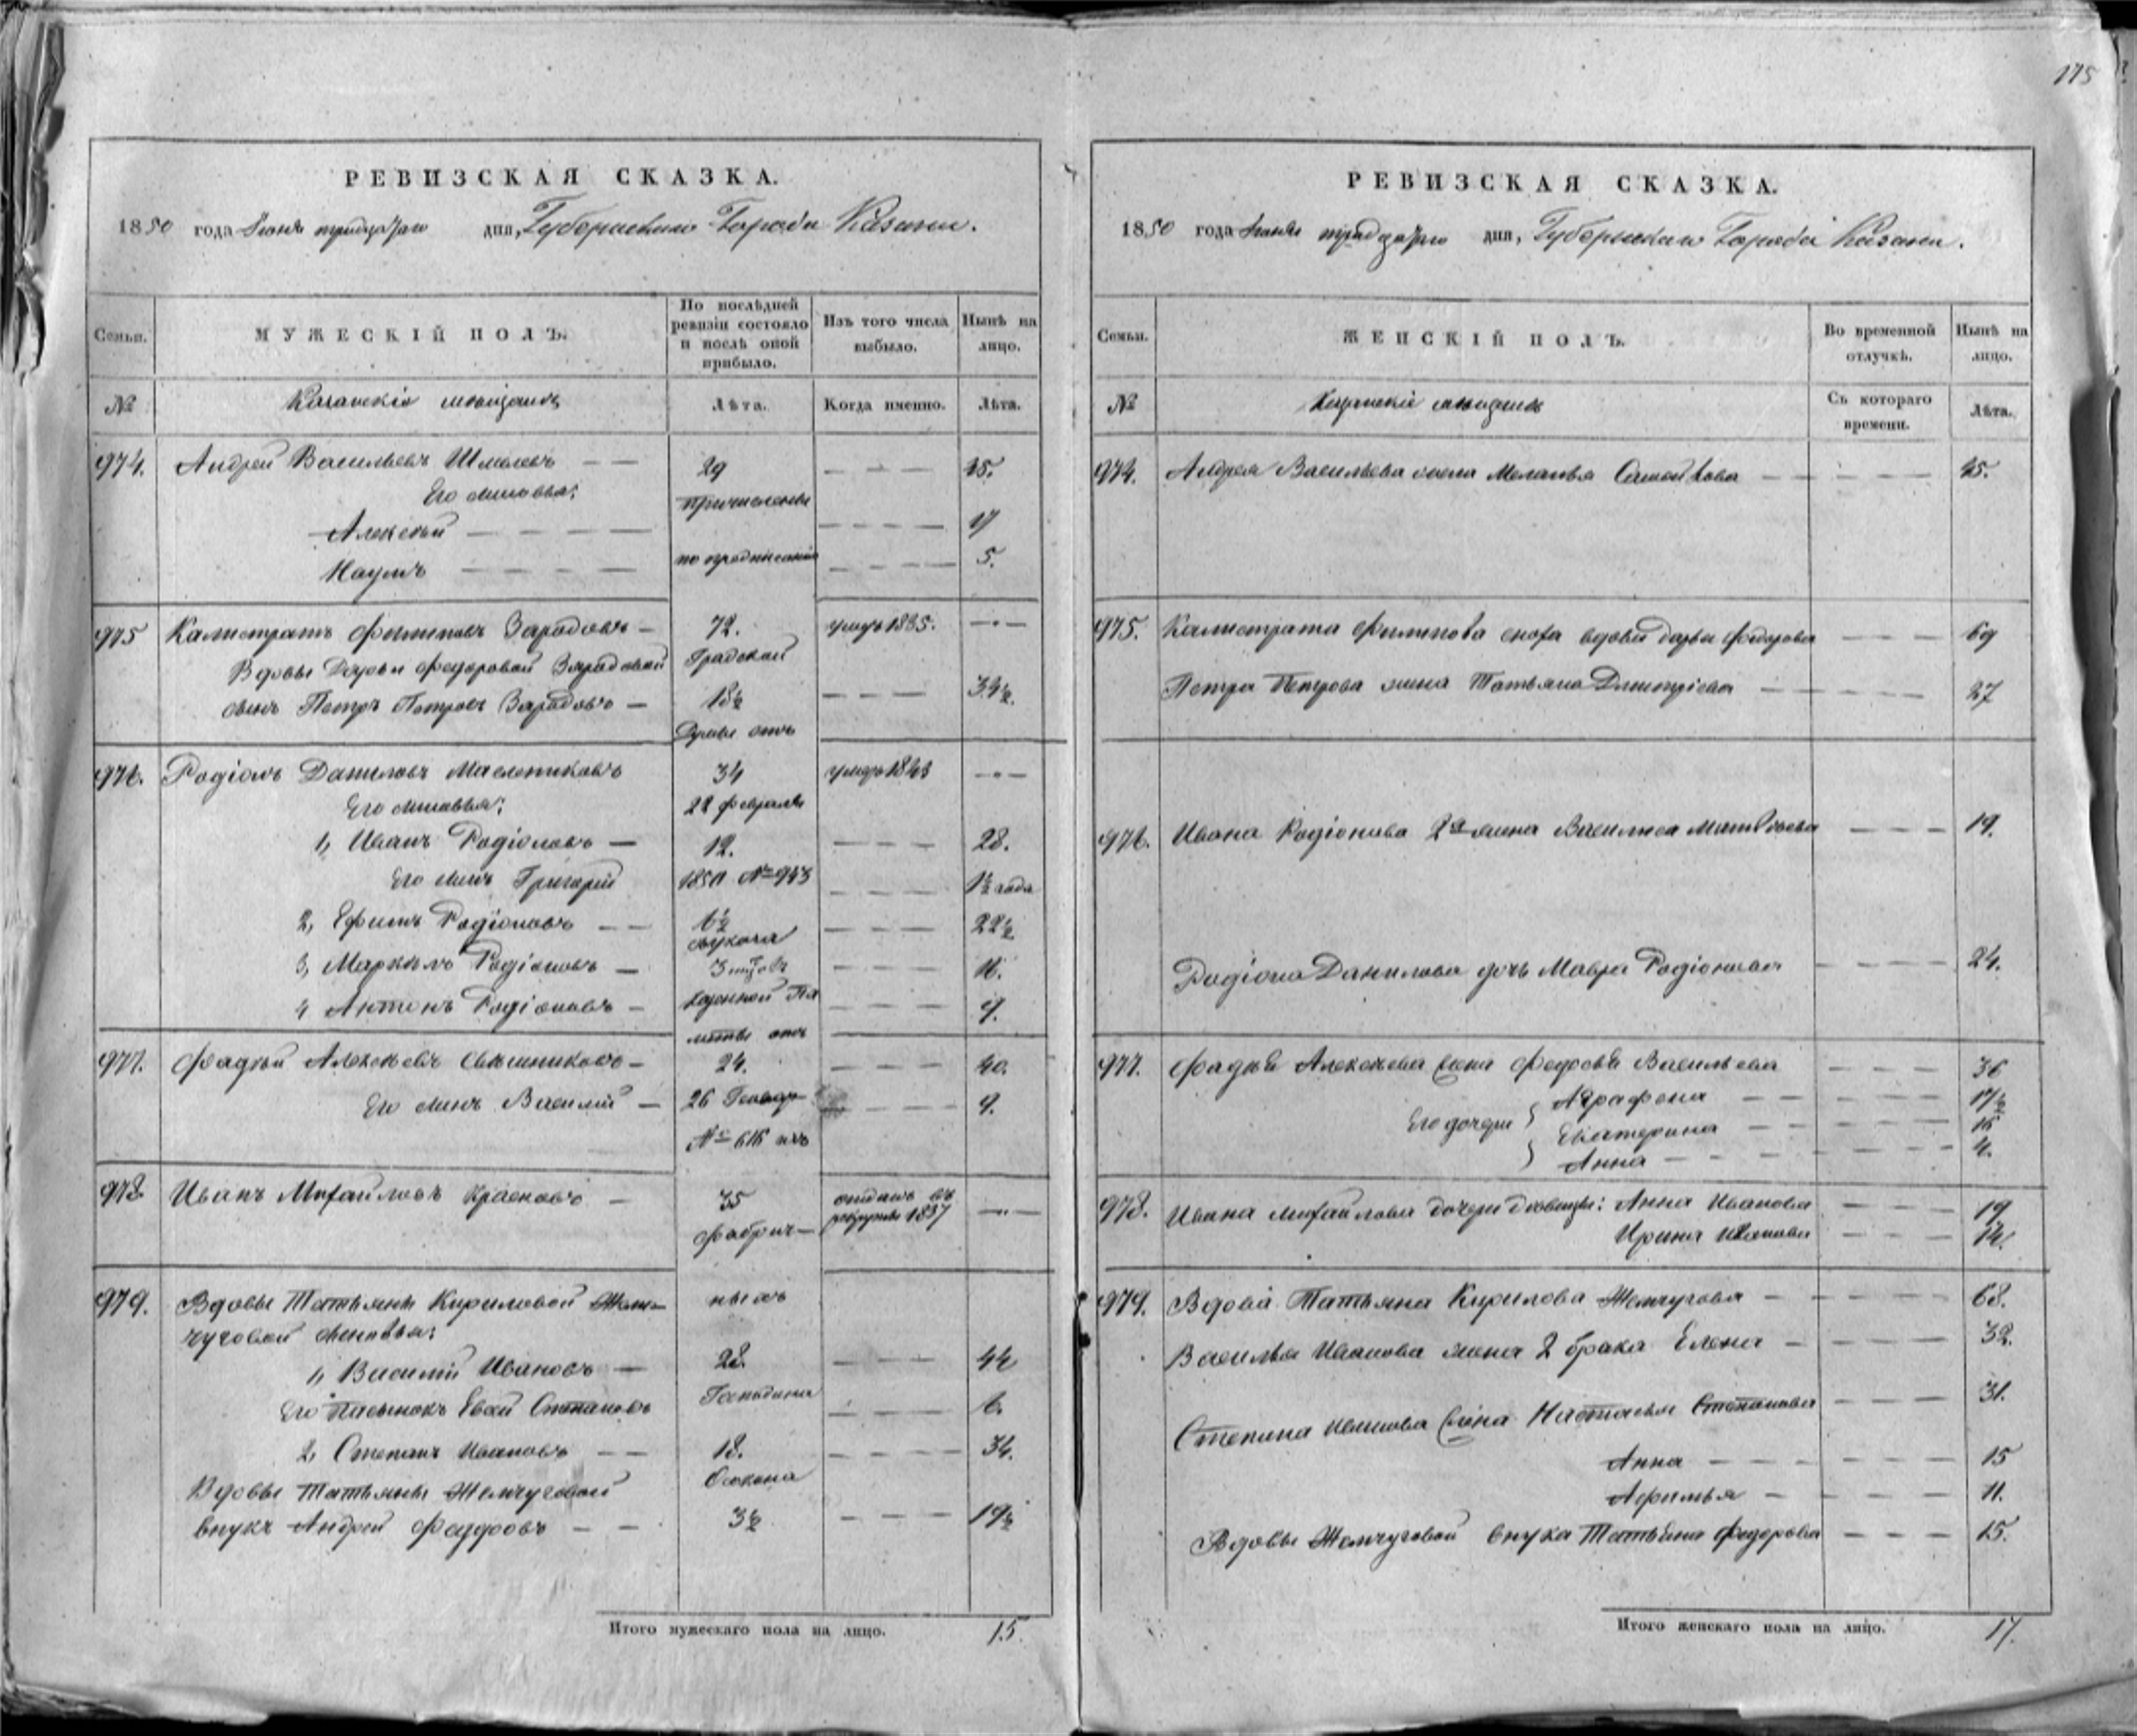 175
РЕВИЗСКАЯ СКАЗКА.
1850 года Iюня тридцатаго дня, Губернскаго Города Казани.
Семьи.
МУЖЕСКІЙ ПОЛЪ.
По послѣдней
ревизіи состояло
и послѣ оной
прибыло.
Изъ того числа
выбыло.
Нынѣ на
лицо.
№
Казанскіе мѣщане
Лѣта.
Когда именно.
Лѣта.
974. Андрей Васильевъ 29 — — — 45.
Его сыновья: Причислены
Алексѣй — — — — — — — 17
по предписанію
Наумъ — — — — — — — — 5.
975 Калистратъ Филиповъ Зарадовъ — 72. умеръ 1835. — „ —
Вдовы Дарьи Федоровой Зарадовой Градской
сынъ Петръ Петровъ Зарадовъ — 18½ — — — 34½.
Думы отъ
976. Родіонъ Даниловъ Масленниковъ 34 умеръ 1843 — „ —
Его сыновья: 22 февраля
1, Иванъ Родіоновъ — 12. — — — 28.
Его сынъ Григорій 1850 № 943 — — — 1½ года
2, Ефимъ Родіоновъ — — 6½ — — — 22½
3, Маркелъ Родіоновъ — — — — 16.
Казенной Па
4 Антонъ Родіоновъ — — — — 9.
латы отъ
977. Фадѣй Алексѣевъ Свѣшниковъ — 24. — — — 40.
Его сынъ Василій — 26 Генвар — — — 9.
№ 616 изъ
978. Иванъ Михайловъ Красновъ — 35 отданъ въ рекруты 1837 — „ —
фабрич—
979. Вдовы Татьяны Кириловой Жем- ныхъ
чуговой сыновья:
1, Василій Ивановъ — 28. — — — 44
Его пасынокъ Степановъ Господина — — — 6.
2, Степанъ Ивановъ — — 18. — — — 34.
Вдовы Татьяны Жемчуговой Осокина
внукъ Андрей Федоровъ — — 3½ — — — 19½
Итого мужескаго пола на лицо. 15.
РЕВИЗСКАЯ СКАЗКА.
1850 года Iюня тридцатаго дня, Губернскаго Города Казани.
Семьи.
ЖЕНСКІЙ ПОЛЪ.
Во временной
отлучкѣ.
Нынѣ на
лицо.
№
Казанскіе мѣщане
Съ котораго
времени.
Лѣта.
974. Андрея Васильева жена Меланья — — — — 45.
975. Калистрата Филипова сноха вдова Дарья Федорова — — — 69
Петра Петрова жена Татьяна Дмитріева — — — — 27
976. Ивана Родіонова 2я жена Василиса Матвѣева — — — 19.
Родіона Данилова дочь Мавра Родіонова — — — — 24.
977. Фадѣя Алексѣева жена Федосья Васильева — — — 36
Его дочери Аграфена — — — — — 17½
Екатерина — — — — — 16
Анна — — — — — — 4.
978. Ивана Михайлова дочери дѣвицы: Анна Иванова — — — 19
Ирина Иванова — — — 14.
979. Вдова Татьяна Кирилова Жемчугова — — — — 68.
Василья Иванова жена 2 брака Елена — — — — 32.
Степана Иванова жена Настасья Степанова — — — 31.
Анна — — — — — — 15
Афимья — — — — — 11.
Вдовы Жемчуговой внука Татьяна Федорова — — — 15.
Итого женскаго пола на лицо. 17.